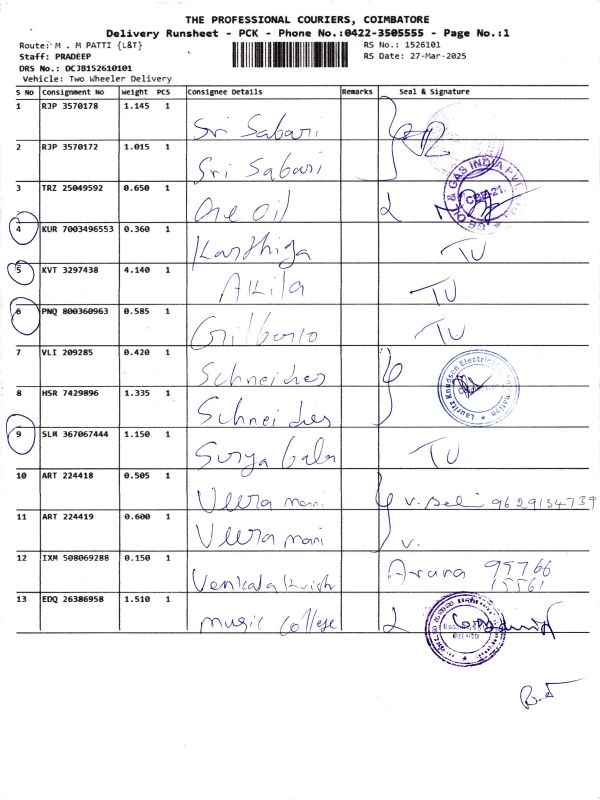 THE PROFESSIONAL COURIERS, COIMBATORE
Delivery Runsheet - PCK - Phone No.:0422-3505555 - Page No.:1
Route: M . M PATTI {L&T}
RS No.: 1526101
Staff: PRADEEP
RS Date: 27-Mar-2025
DRS No.: DCJB152610101
Vehicle: Two Wheeler Delivery
S No Consignment No Weight PCS Consignee Details Remarks Seal & Signature
1 RJP 3570178 1.145 1 Sri Sabari
2 RJP 3570172 1.015 1 Sri Sabari
3 TRZ 25049592 0.650 1 One Oil
& GAS INDIA PVT
4 KUR 7003496553 0.360 1 Karthiga TU
5 KVT 3297438 4.140 1 Akila TU
6 PNQ 800360963 0.585 1 Gilbarco TU
7 VLI 209285 0.420 1 Schneider
Lauritz Knudsen Electrical
8 HSR 7429896 1.335 1 Schneider
9 SLM 367067444 1.150 1 Surya bala TU
10 ART 224418 0.505 1 Veera mani V. 9629154739
11 ART 224419 0.600 1 Veera mani V.
12 IXM 508069288 0.150 1 Aruna 97766
15561
13 EDQ 26386958 1.510 1 music College